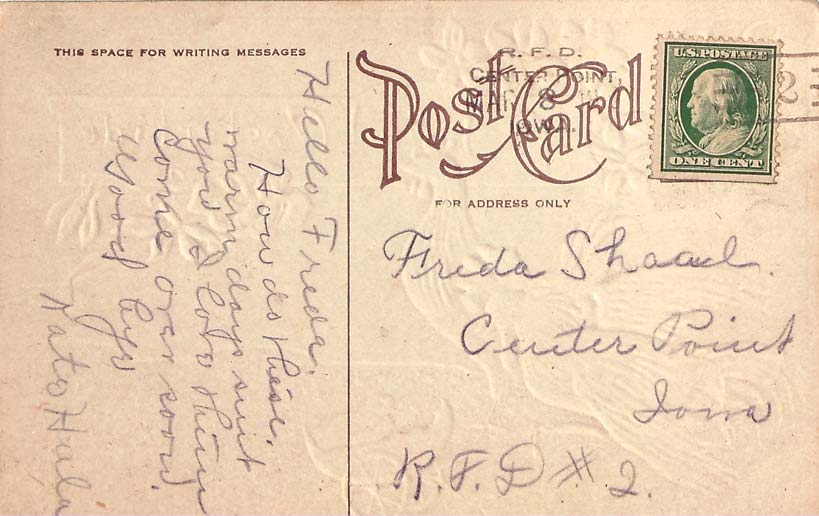 THIS SPACE FOR WRITING MESSAGES
Hello Freda,
How do these
warm days suit
you I love them
Come over soon.
Good bye
Post Card
R.F.D.
CENTER POINT,
MAR 8
IOWA.
U.S. POSTAGE
ONE CENT
2
FOR ADDRESS ONLY
Freda
Center Point
Iowa
R.F.D # 2.